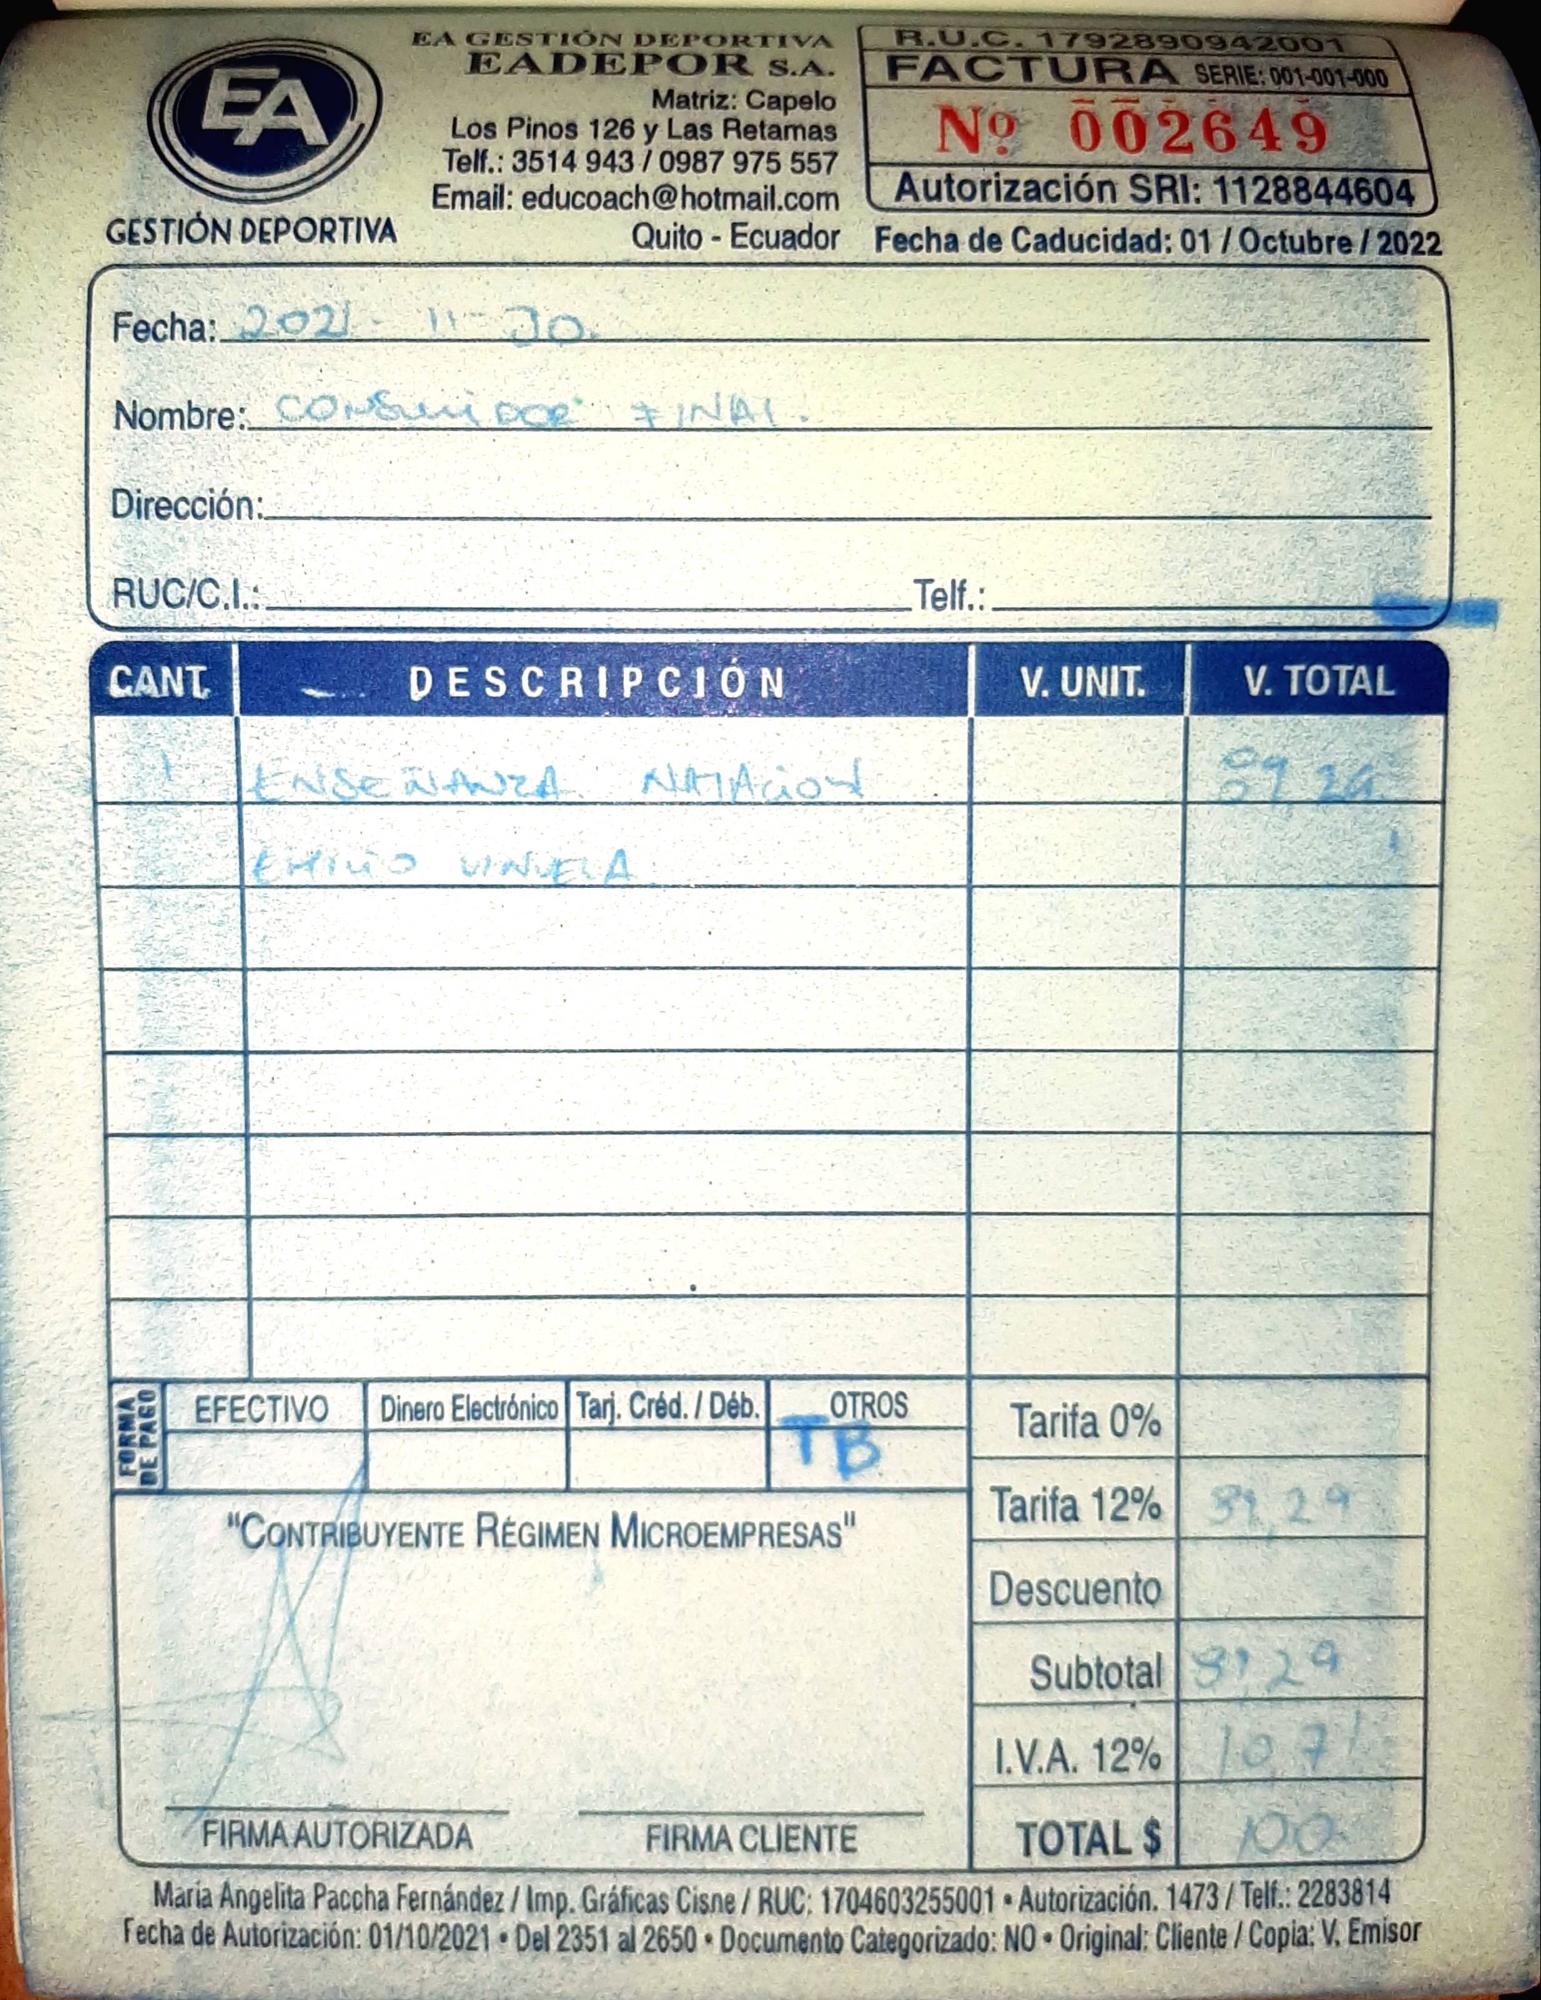 EA
GESTIÓN DEPORTIVA
EA GESTIÓN DEPORTIVA
EADEPOR S.A.
Matriz: Capelo
Los Pinos 126 y Las Retamas
Telf.: 3514 943 / 0987 975 557
Email: educoach@hotmail.com
Quito - Ecuador
R.U.C. 1792890942001
FACTURA SERIE: 001-001-000
Nº 002649
Autorización SRI: 1128844604
Fecha de Caducidad: 01 / Octubre / 2022
Fecha: 2021 - 11 -
Nombre: CONSUMIDOR FINAL.
Dirección:
RUC/C.I.: Telf.:
CANT. DESCRIPCIÓN V. UNIT. V. TOTAL
1 ENSEÑANZA NATACION 89,29
EMILIO
FORMA DE PAGO
EFECTIVO Dinero Electrónico Tarj. Créd. / Déb. OTROS
TB
Tarifa 0%
Tarifa 12% 89,29
Descuento
Subtotal 89,29
I.V.A. 12% 10,71
TOTAL $ 100
"CONTRIBUYENTE RÉGIMEN MICROEMPRESAS"
FIRMA AUTORIZADA FIRMA CLIENTE
María Angelita Paccha Fernández / Imp. Gráficas Cisne / RUC: 1704603255001 • Autorización. 1473 / Telf.: 2283814
Fecha de Autorización: 01/10/2021 • Del 2351 al 2650 • Documento Categorizado: NO • Original: Cliente / Copia: V. Emisor